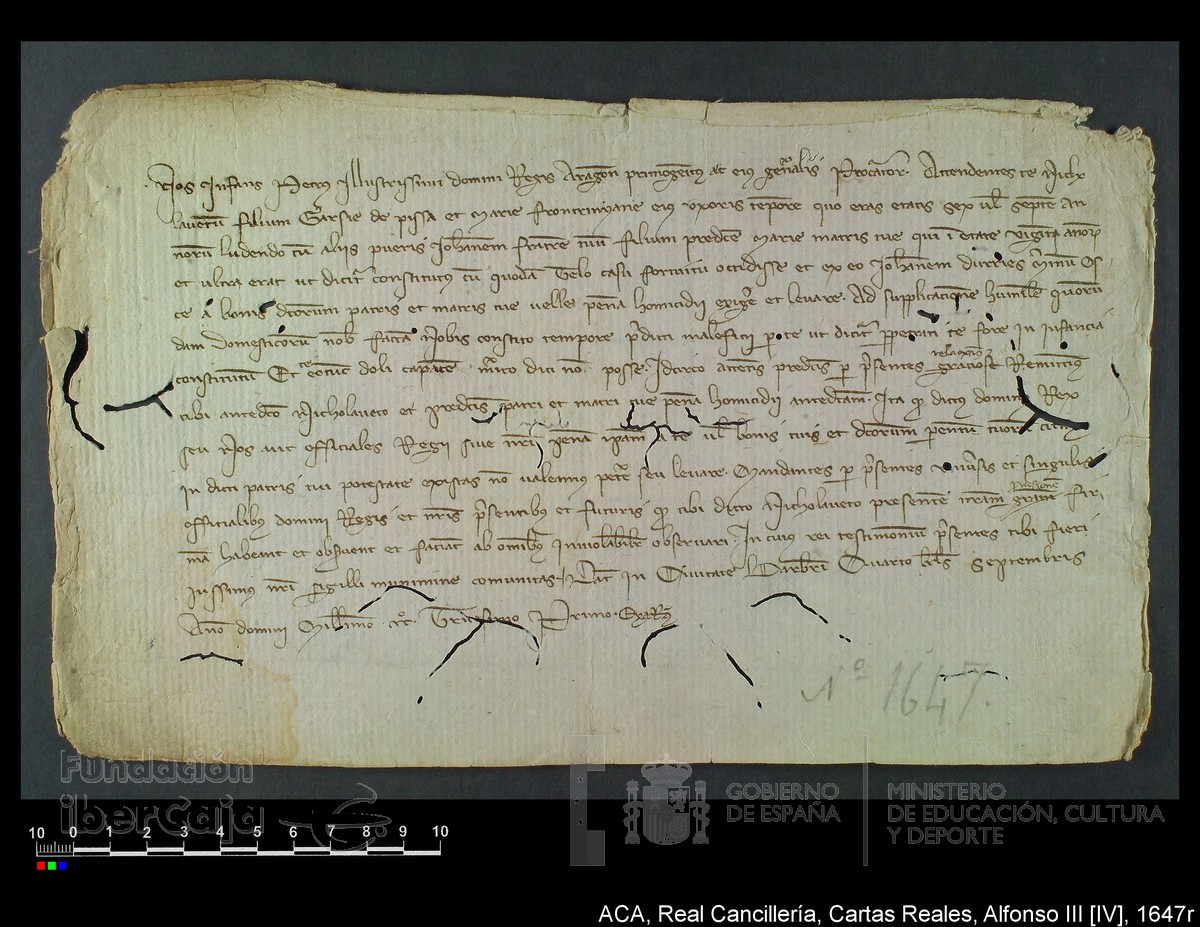 Nos Infans Petrus Illustrissimi domini Regis Aragon primogenitus ac eius generalis Procurator. Attendentes te Nich
lauetum filium Garsie de pissa et Marie uxoris tempore quo eras etatis sex vel septem an
norum ludendo cum aliis pueris Johannem fratrem tuum filium predicte Marie matris tue qui in etate viginti annorum
et ultra erat ut dicitur constitutus cum quodam telo casu fortuitu occidisse et ex eo Johannem durries
te a bonis dictorum patris et matris tue velle pena homicidii exigere et levare. Ad supplicacione humilem quorun
dam domesticorum nobis factam Nobis constito tempore predicti maleficii per te ut dicitur perpetrati te fore in Infancia
constitutum Et te eotunc doli capacem merito dici non posse. Idcirco attentis predictis per presentes graciose relaxamus Remittimus
tibi antedicto Nicholaueto et predictis patri et matri tue pena homicidii antedictam. Ita quod dictus dominus Rex
seu Nos aut officiales Regii sive nostri pena ipsam a te vel bonis tuis et dictorum parentum tuorum
in dicti patris tui potestate existas non valeamus petere seu levare. Mandantes per presentes universis et singulis
officialibus domini Regis et nostris presentibus et futuris quod tibi dicto Nicholaueto presentem nostram graciam remissionem fir
mam habeant et observent et faciant ab omnibus inviolabiliter observari. In cuius rei testimonium presentes tibi fieri
iussimus nostri sigilli munimine comunitas. Dat in Civitate Barbastri Quarto kalendas Septembris
Anno domini Millesimo CCC Tricesimo Primo.
Nº 1647.
Fundación
iberCaja
GOBIERNO
DE ESPAÑA
MINISTERIO
DE EDUCACIÓN, CULTURA
Y DEPORTE
10 0 1 2 3 4 5 6 7 8 9 10
ACA, Real Cancillería, Cartas Reales, Alfonso III [IV], 1647r